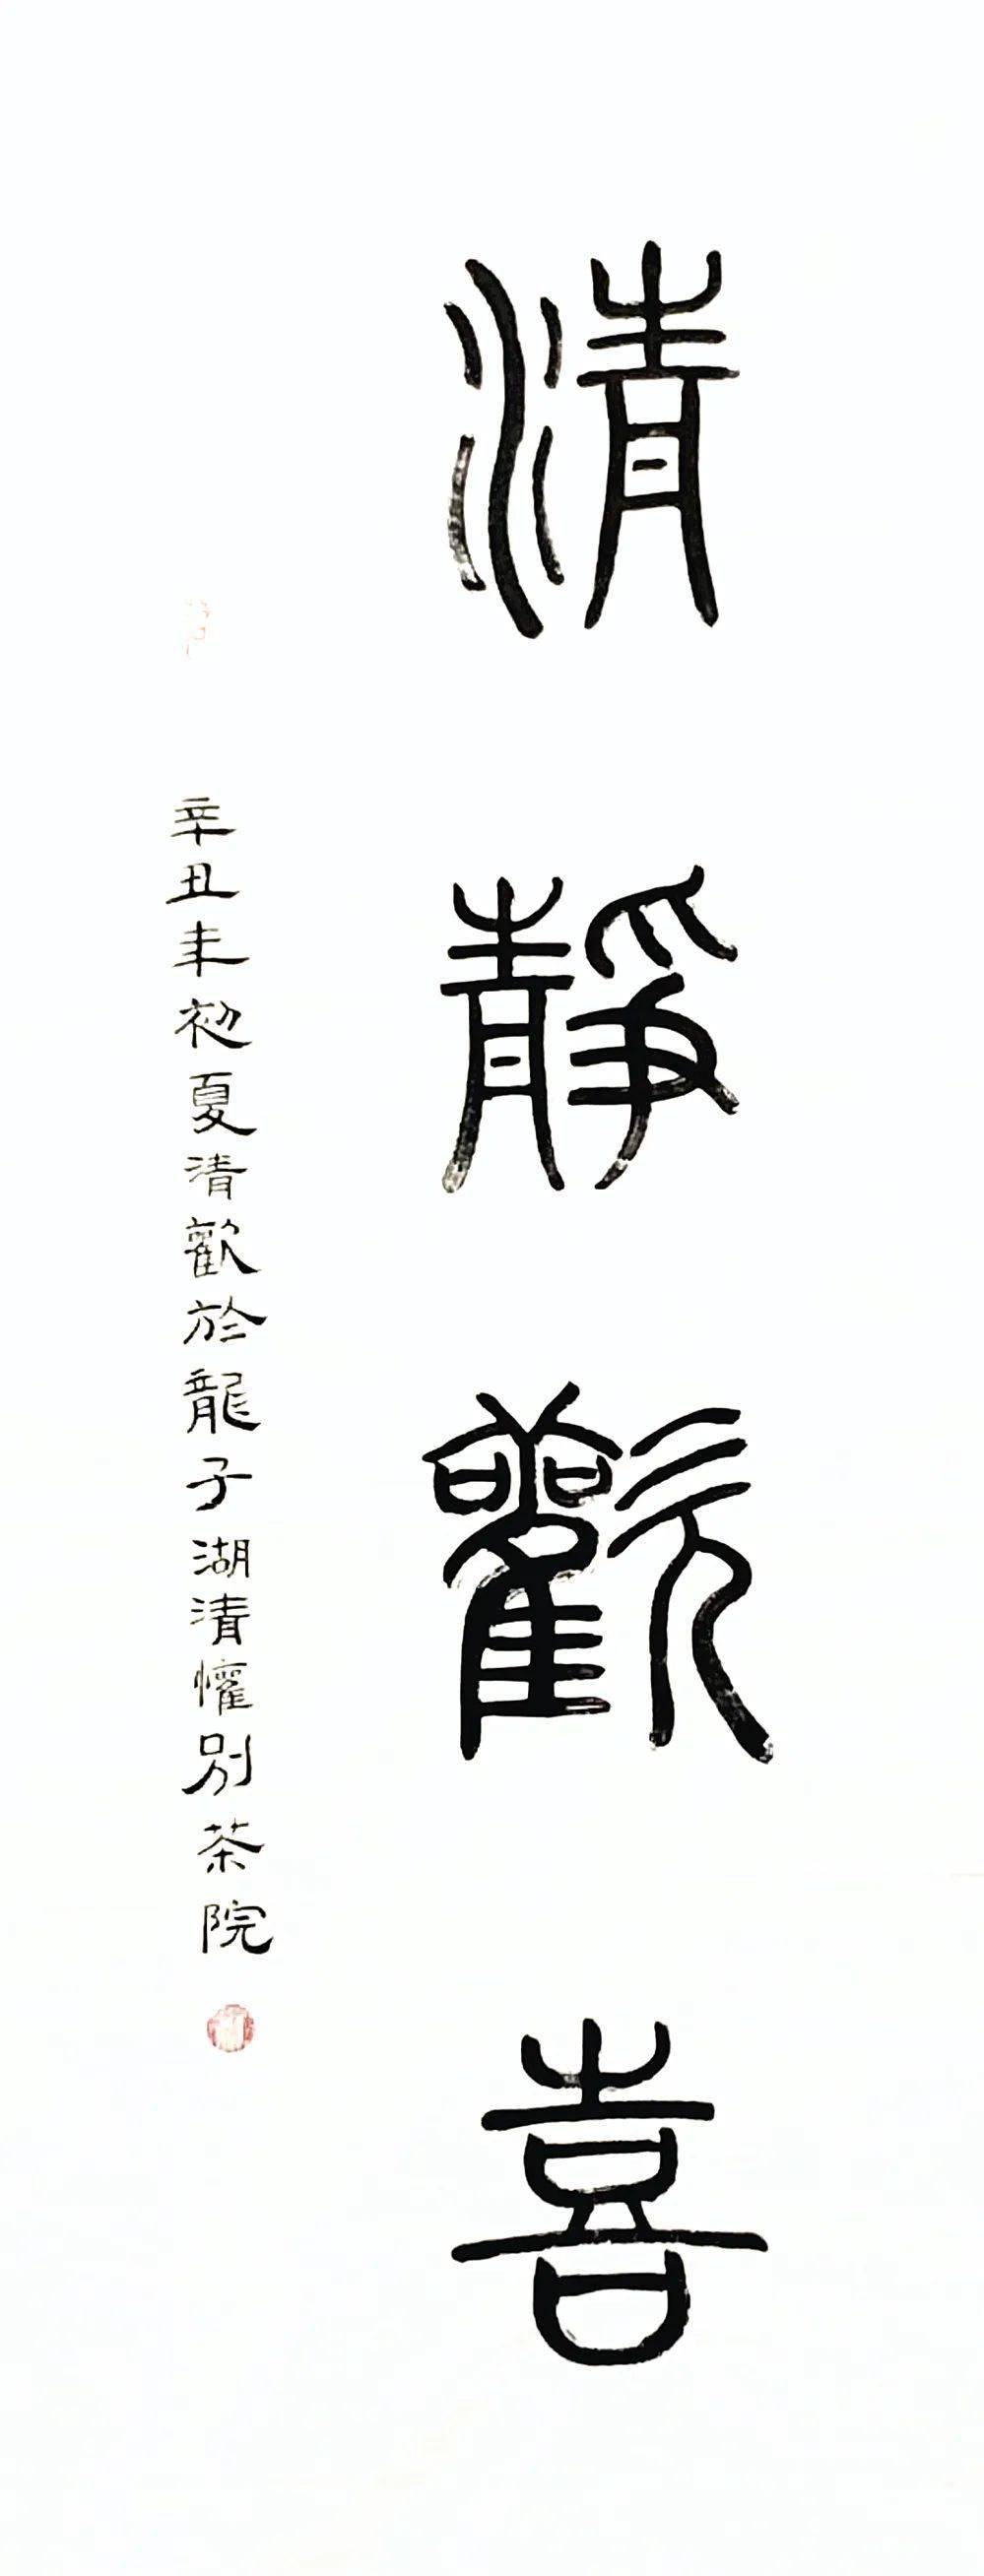 清靜歡喜
辛丑年初夏清歡於龍子湖清懽別茶院